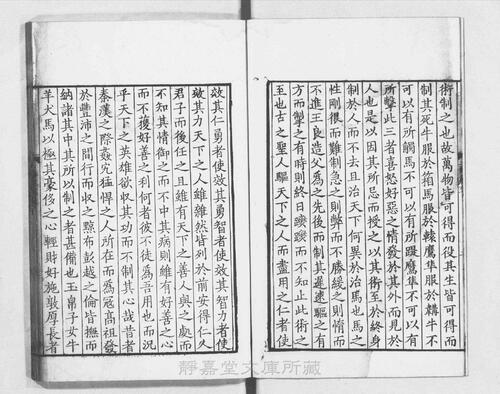 術制之也故萬物皆可得而役其生皆可得而
制其死牛服於箱馬服於轅鷹隼服於韝牛不
可以有所觸馬不可以有所踶鷹隼不可以有
所擊此三者喜怒好惡之情發於其外而見於
人也是以因其所忌而授之以其術至於終身
制於人而不去且治天下何異於治馬也馬之
性剛很而難制急之則弊而不勝緩之則惰而
不進王良造父爲之先後而制其遲速驅之有
方而掣之有時則終日蹀躞而不知止此術之
至也古之聖人驅天下之人而盡用之仁者使
效其仁勇者使效其勇智者使效其智力者使
效其力天下之人雖雜然皆列於前安得仁人
君子而後任之且雖有天下之善人與之處而
不知其情御之而不中其病則雖有好善之心
而不獲好善之利何者彼不徒爲吾用也而況
乎天下之英雄欲收其功而不制其心哉昔者
秦漢之際姦宄猛悍之人所在而爲寇高祖發
於豐沛之間行而收之黥布彭越之倫皆撫而
納諸其中其所以制之者甚備也玉帛子女牛
羊犬馬以極其豪侈之心輕財好施敦厚長者
靜嘉堂文庫所藏